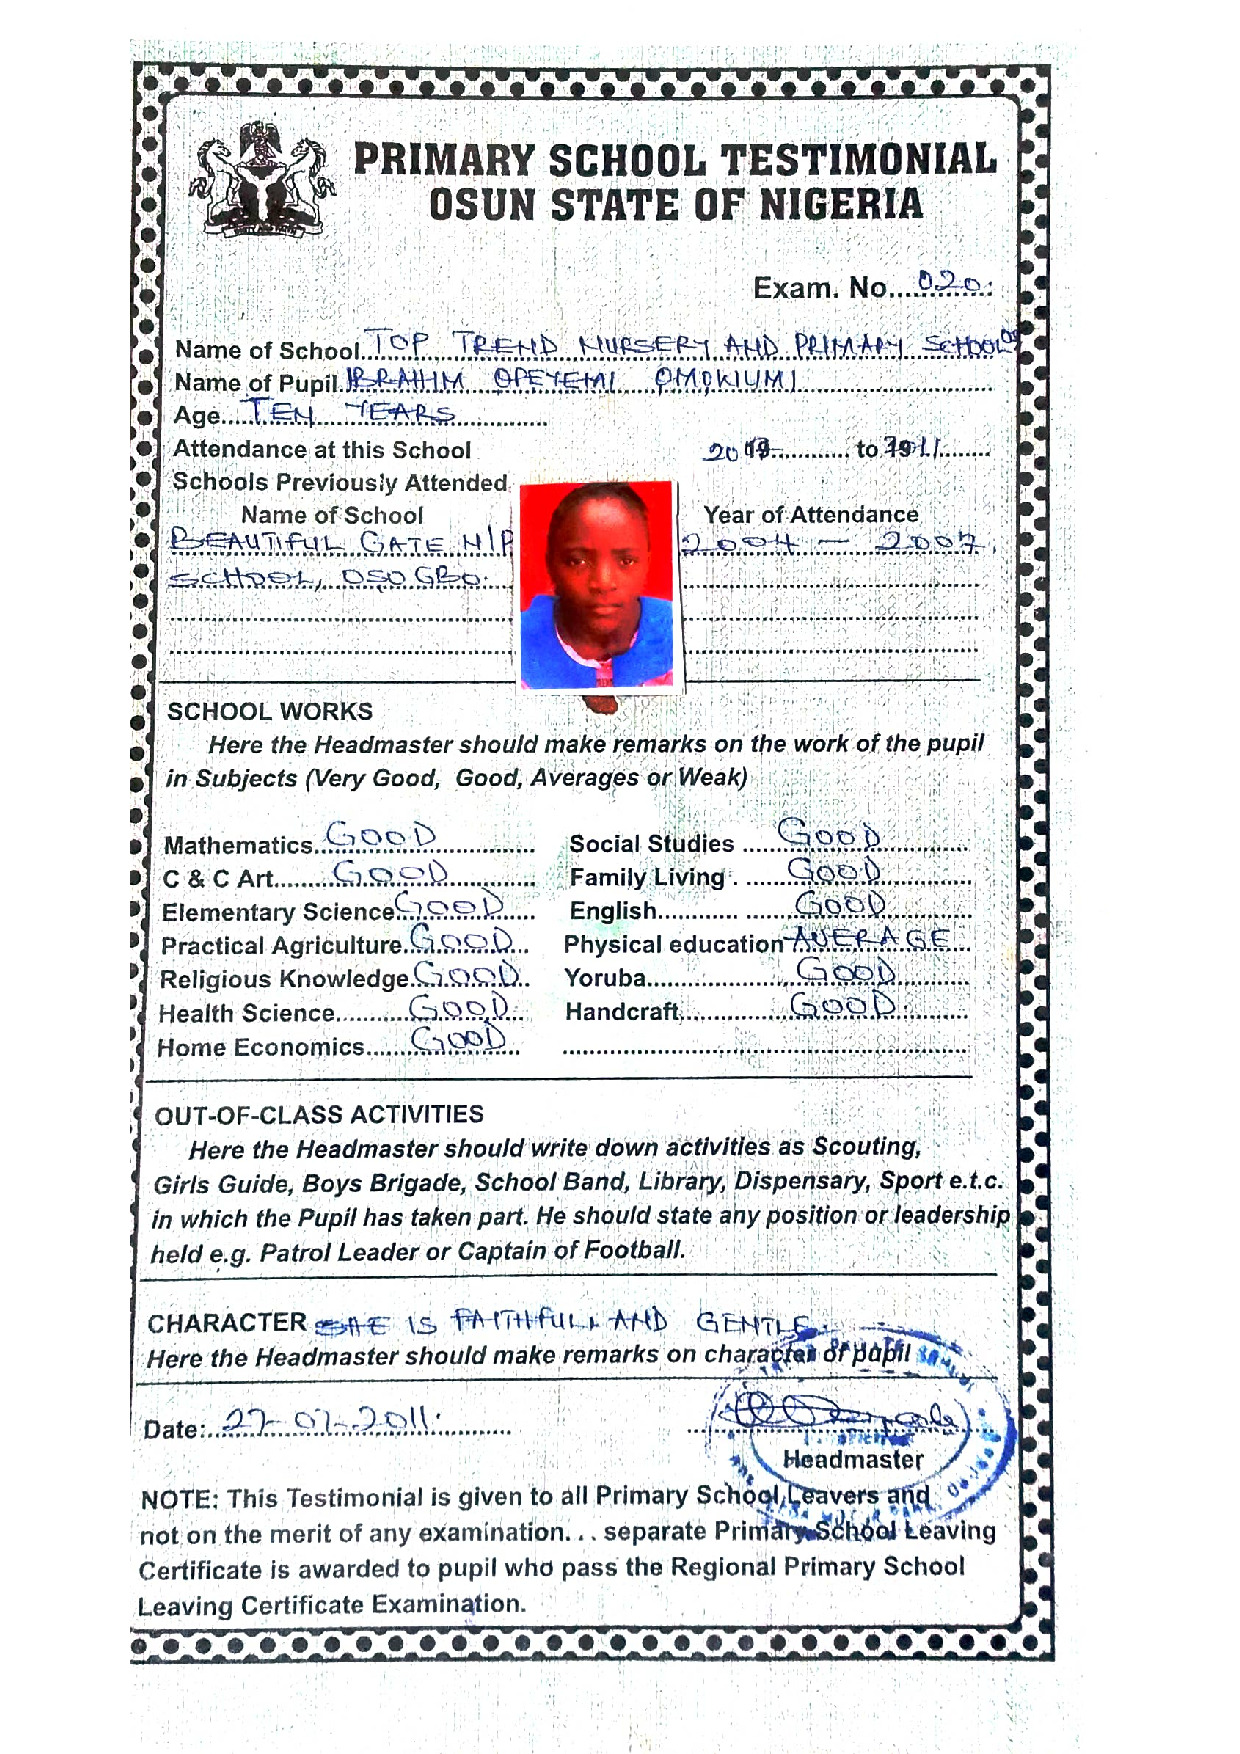 PRIMARY SCHOOL TESTIMONIAL
OSUN STATE OF NIGERIA
Exam. No....020.
Name of School TOP TREND NURSERY AND PRIMARY SCHOOL
Name of Pupil IBRAHIM OPEYEMI OMOKIUMI
Age....TEN YEARS
Attendance at this School to
Schools Previously Attended
Name of School Year of Attendance
BEAUTIFUL GATE N/P 2004 - 2007.
SCHOOL, OSOGBO.
SCHOOL WORKS
Here the Headmaster should make remarks on the work of the pupil
in Subjects (Very Good, Good, Averages or Weak)
Mathematics..GOOD Social Studies ....GOOD
C & C Art....GOOD Family Living . ....GOOD
Elementary Science GOOD English............ ....GOOD
Practical Agriculture.GOOD Physical education AVERAGE
Religious Knowledge.GOOD Yoruba....GOOD
Health Science....GOOD. Handcraft....GOOD.
Home Economics....GOOD
OUT-OF-CLASS ACTIVITIES
Here the Headmaster should write down activities as Scouting,
Girls Guide, Boys Brigade, School Band, Library, Dispensary, Sport e.t.c.
in which the Pupil has taken part. He should state any position or leadership
held e.g. Patrol Leader or Captain of Football.
CHARACTER SHE IS FAITHFULL AND GENTLE.
Here the Headmaster should make remarks on character of pupil
Date: 27-07-2011.
Headmaster
NOTE: This Testimonial is given to all Primary School Leavers and
not on the merit of any examination. . . separate Primary School Leaving
Certificate is awarded to pupil who pass the Regional Primary School
Leaving Certificate Examination.